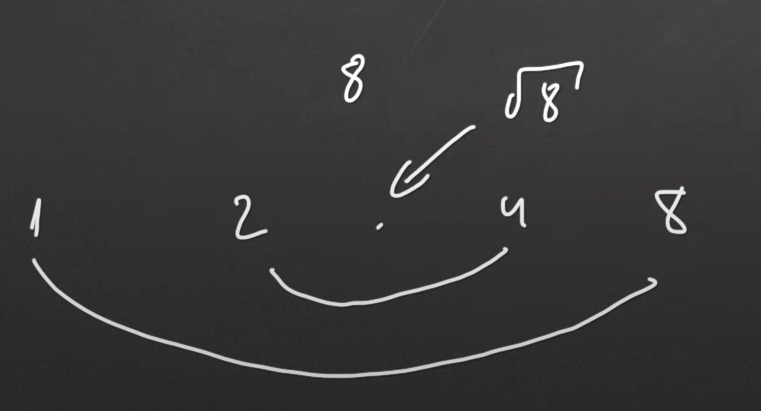 8 √8
1 2 . 4 8